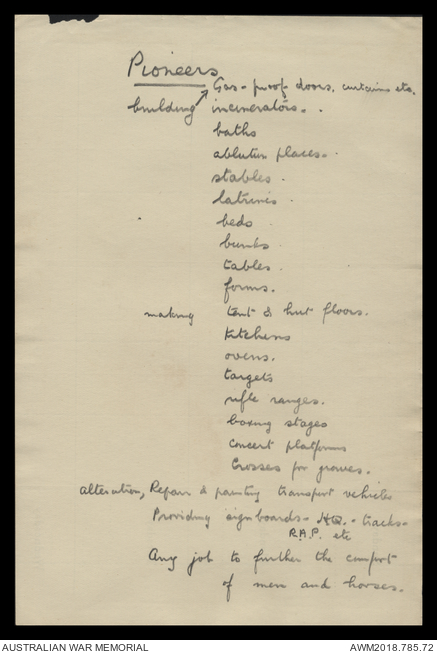 Pioneers
Gas-proof doors, curtains etc.
building incinerators.
baths
ablution places.
stables.
latrines
beds
bunks
tables.
forms.
making tent & hut floors.
kitchens
ovens.
targets
rifle ranges.
boxing stages
concert platforms
Crosses for graves.
alteration, Repair & painting transport vehicles
Providing signboards - HQ. - tracks -
R.A.P. etc
Any job to further the comfort
of men and horses.
AUSTRALIAN WAR MEMORIAL
AWM2018.785.72